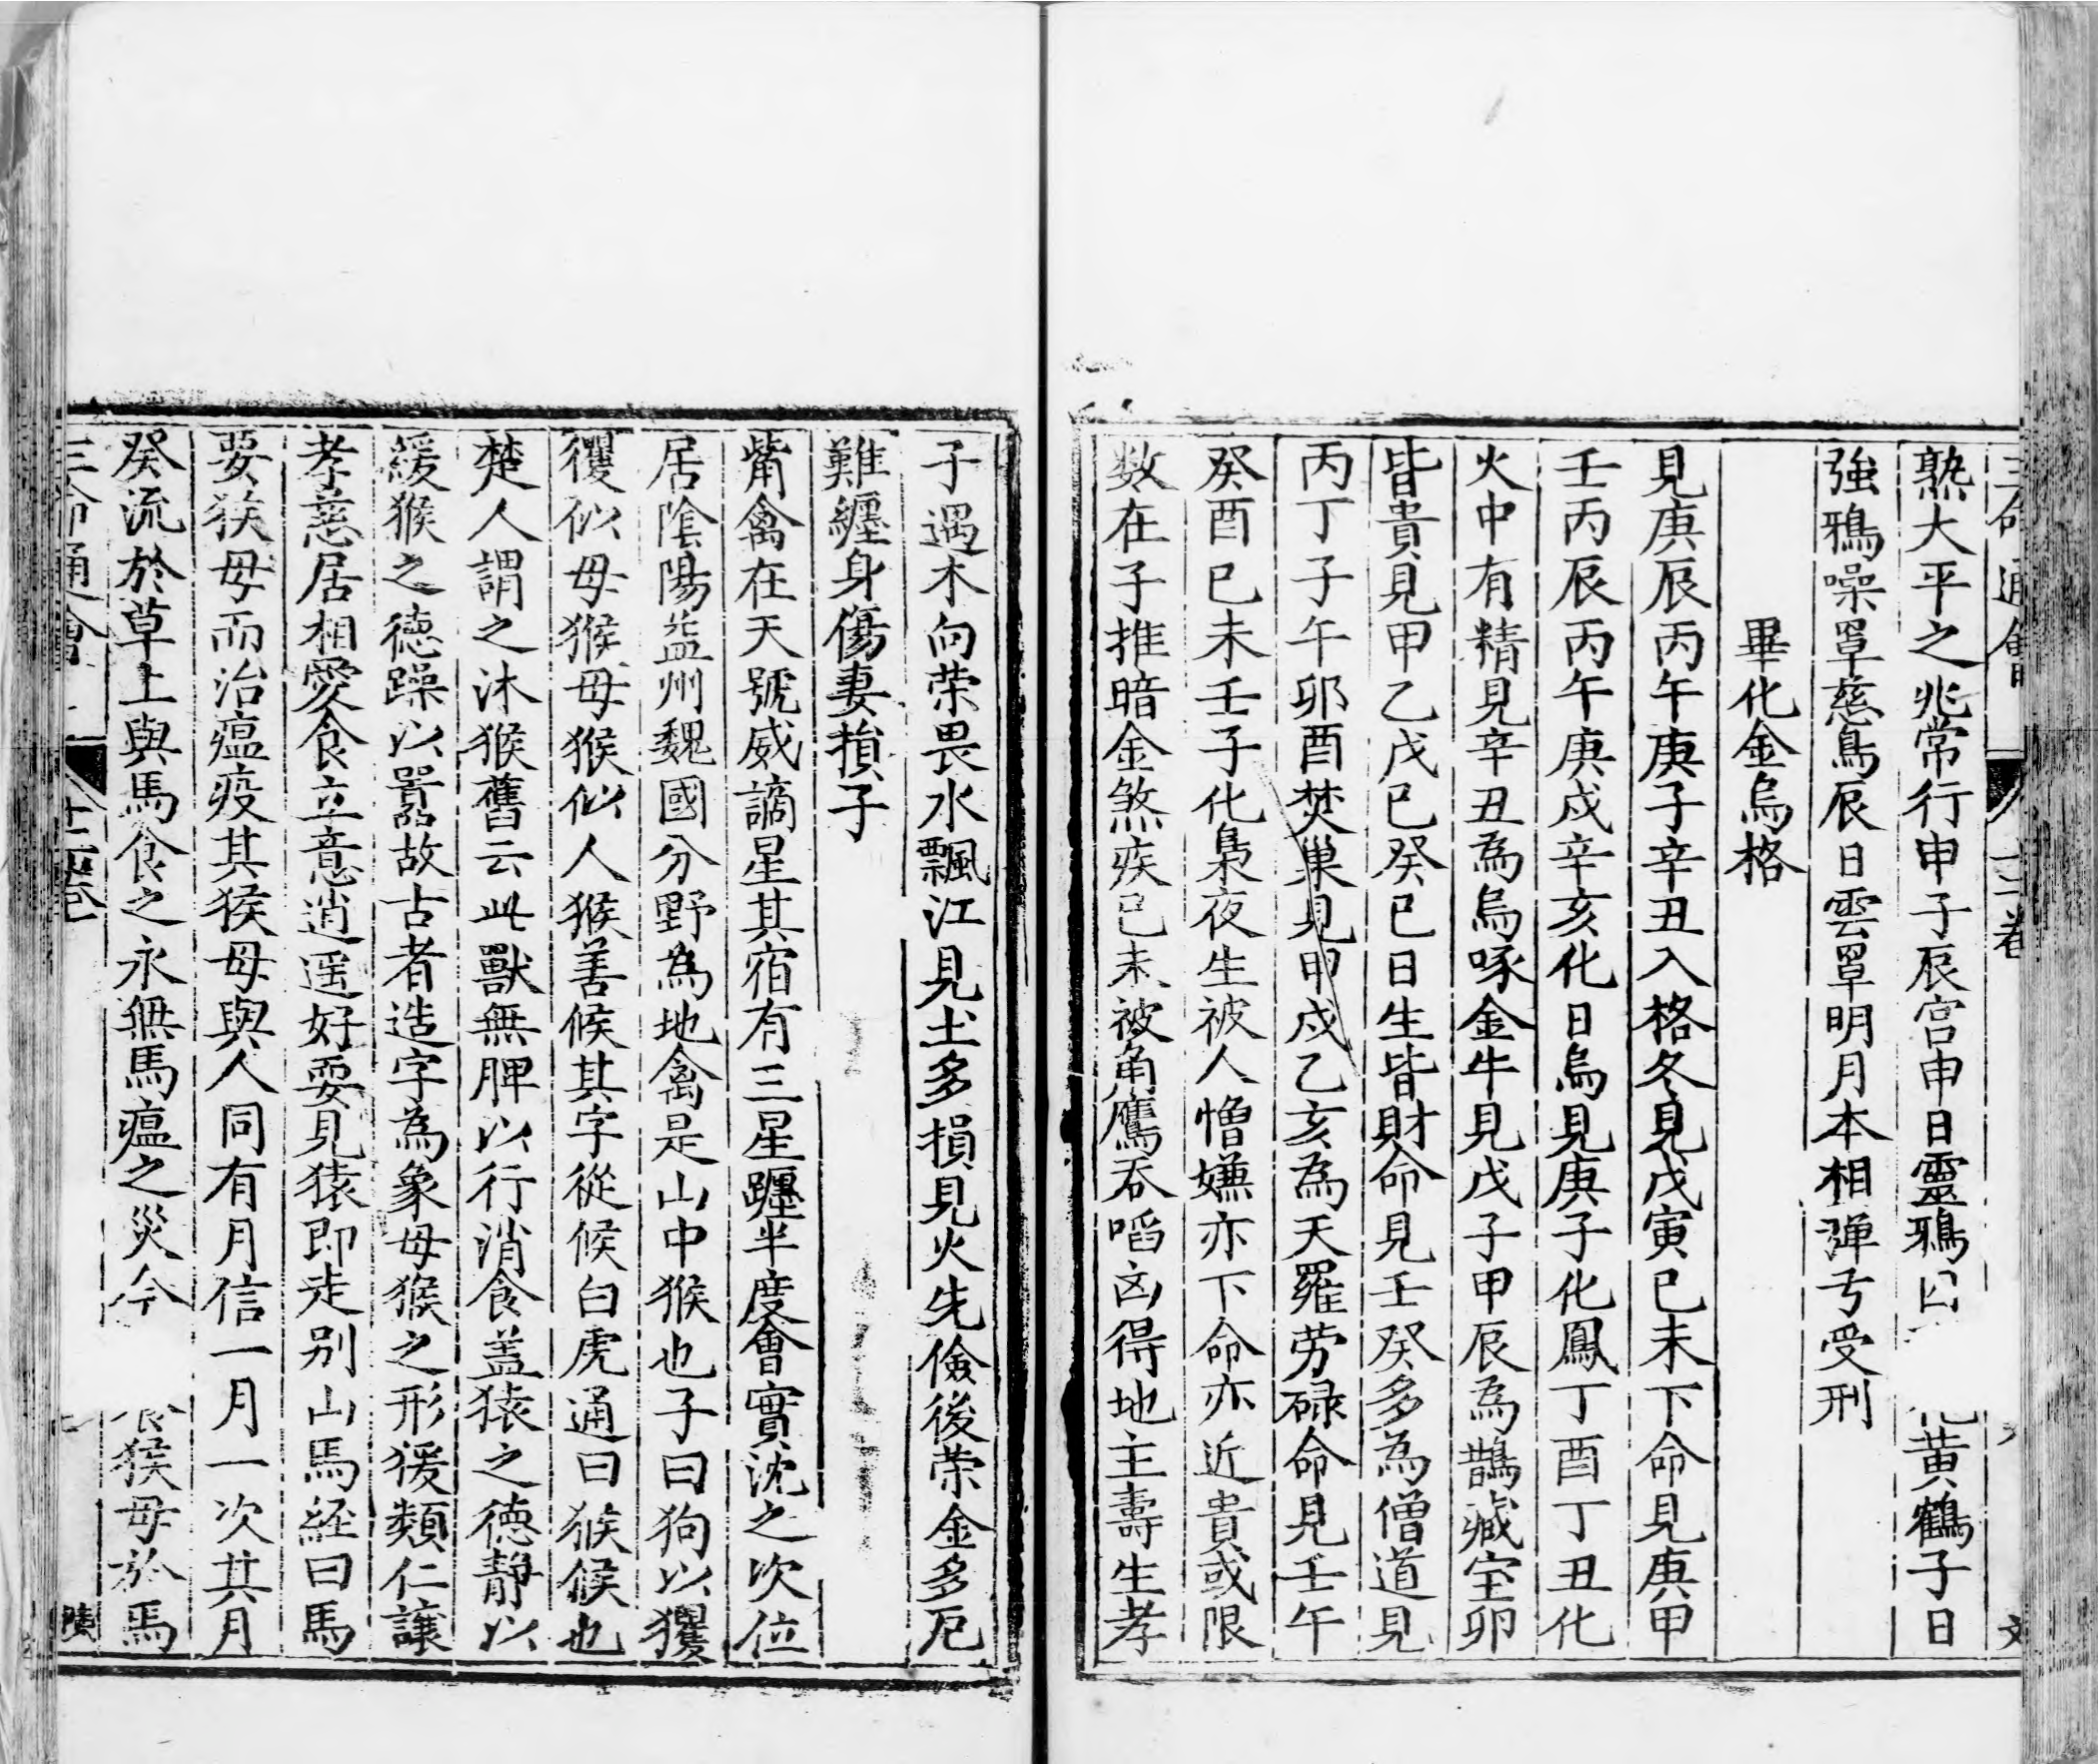 三命通會 十二卷
熟大平之兆常行申子辰宮申日靈鴉 黃鶴子日
強鴉噪罩慈烏辰日雲罩明月本相彈亐受刑
畢化金烏格
見庚辰丙午庚子辛丑入格冬見戊寅巳未下命見庚甲
壬丙辰丙午庚戍辛亥化日烏見庚子化鳳丁酉丁丑化
火中有精見辛丑為烏啄金牛見戊子甲辰為鵲藏室卯
皆貴見甲乙戊巳癸巳日生皆財命見壬癸多為僧道見
丙丁子午卯酉焚巢見甲戍乙亥為天羅劳碌命見壬午
癸酉巳未壬子化梟夜生被人憎嫌亦下命亦近貴或限
数在子推暗金煞疾巳未被角鷹吞啗凶得地主壽生孝
子遇木向荣畏水飄江見土多損見火先儉後荣金多厄
難纏身傷妻損子
觜禽在天號威謫星其宿有三星躔半度會實沈之次位
居陰陽益州魏國分野為地禽是山中猴也子曰狗以玃
玃似母猴母猴似人猴善候其字從候白虎通曰猴候也
楚人謂之沐猴舊云此獸無脾以行消食盖猿之德靜以
緩猴之德躁以嚣故古者造字為象母猴之形猨類仁讓
孝慈居相愛食立意逍遥好耍見猿即走别山馬経曰馬
要猴母而治瘟疫其猴母與人同有月信一月一次其月
癸流於草上與馬食之永無馬瘟之災今 猴母於馬
三命通會 十二卷